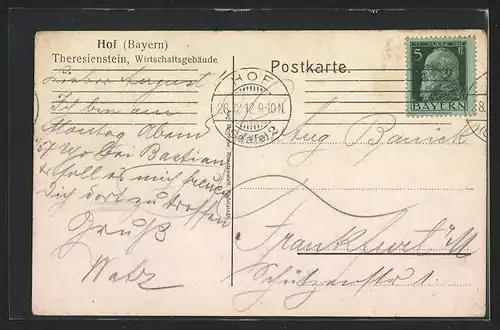 Hof (Bayern)
Theresienstein, Wirtschaftsgebäude
Postkarte.
5
BAYERN
HOF
28 12 12 9-10 N
2
Lieber August!
Ich bin am
Montag Abend
Uhr bei Bastian
soll es mich freuen
Dich dort zu treffen
Gruß
Watz
Aug
Frankfurt a/M
Schützenstr 1.